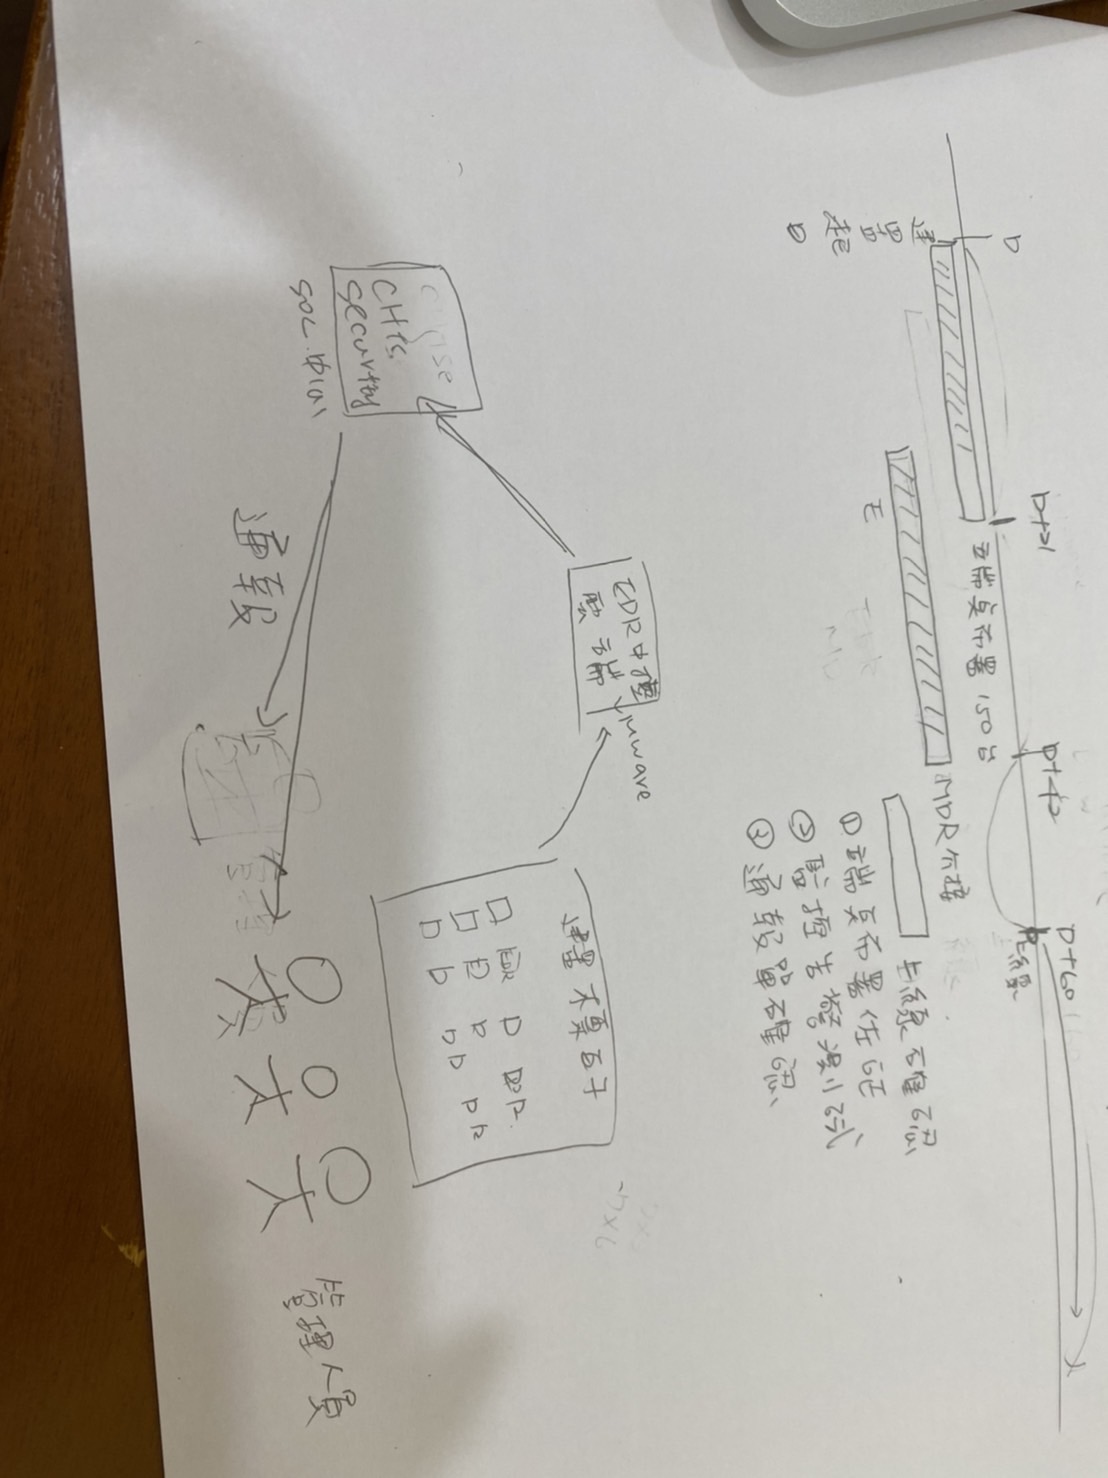 D
D+21
D+42
D+60
上線
端点布署 150台
建置起日
MDR介接
E
上線確認
① 端点布署佐證
② 監控告警測試
③ 通報單確認
EDR中控
雲端
VMware
建置標的
EDR
CHTS
security
SOC 中心
通報
管理人員